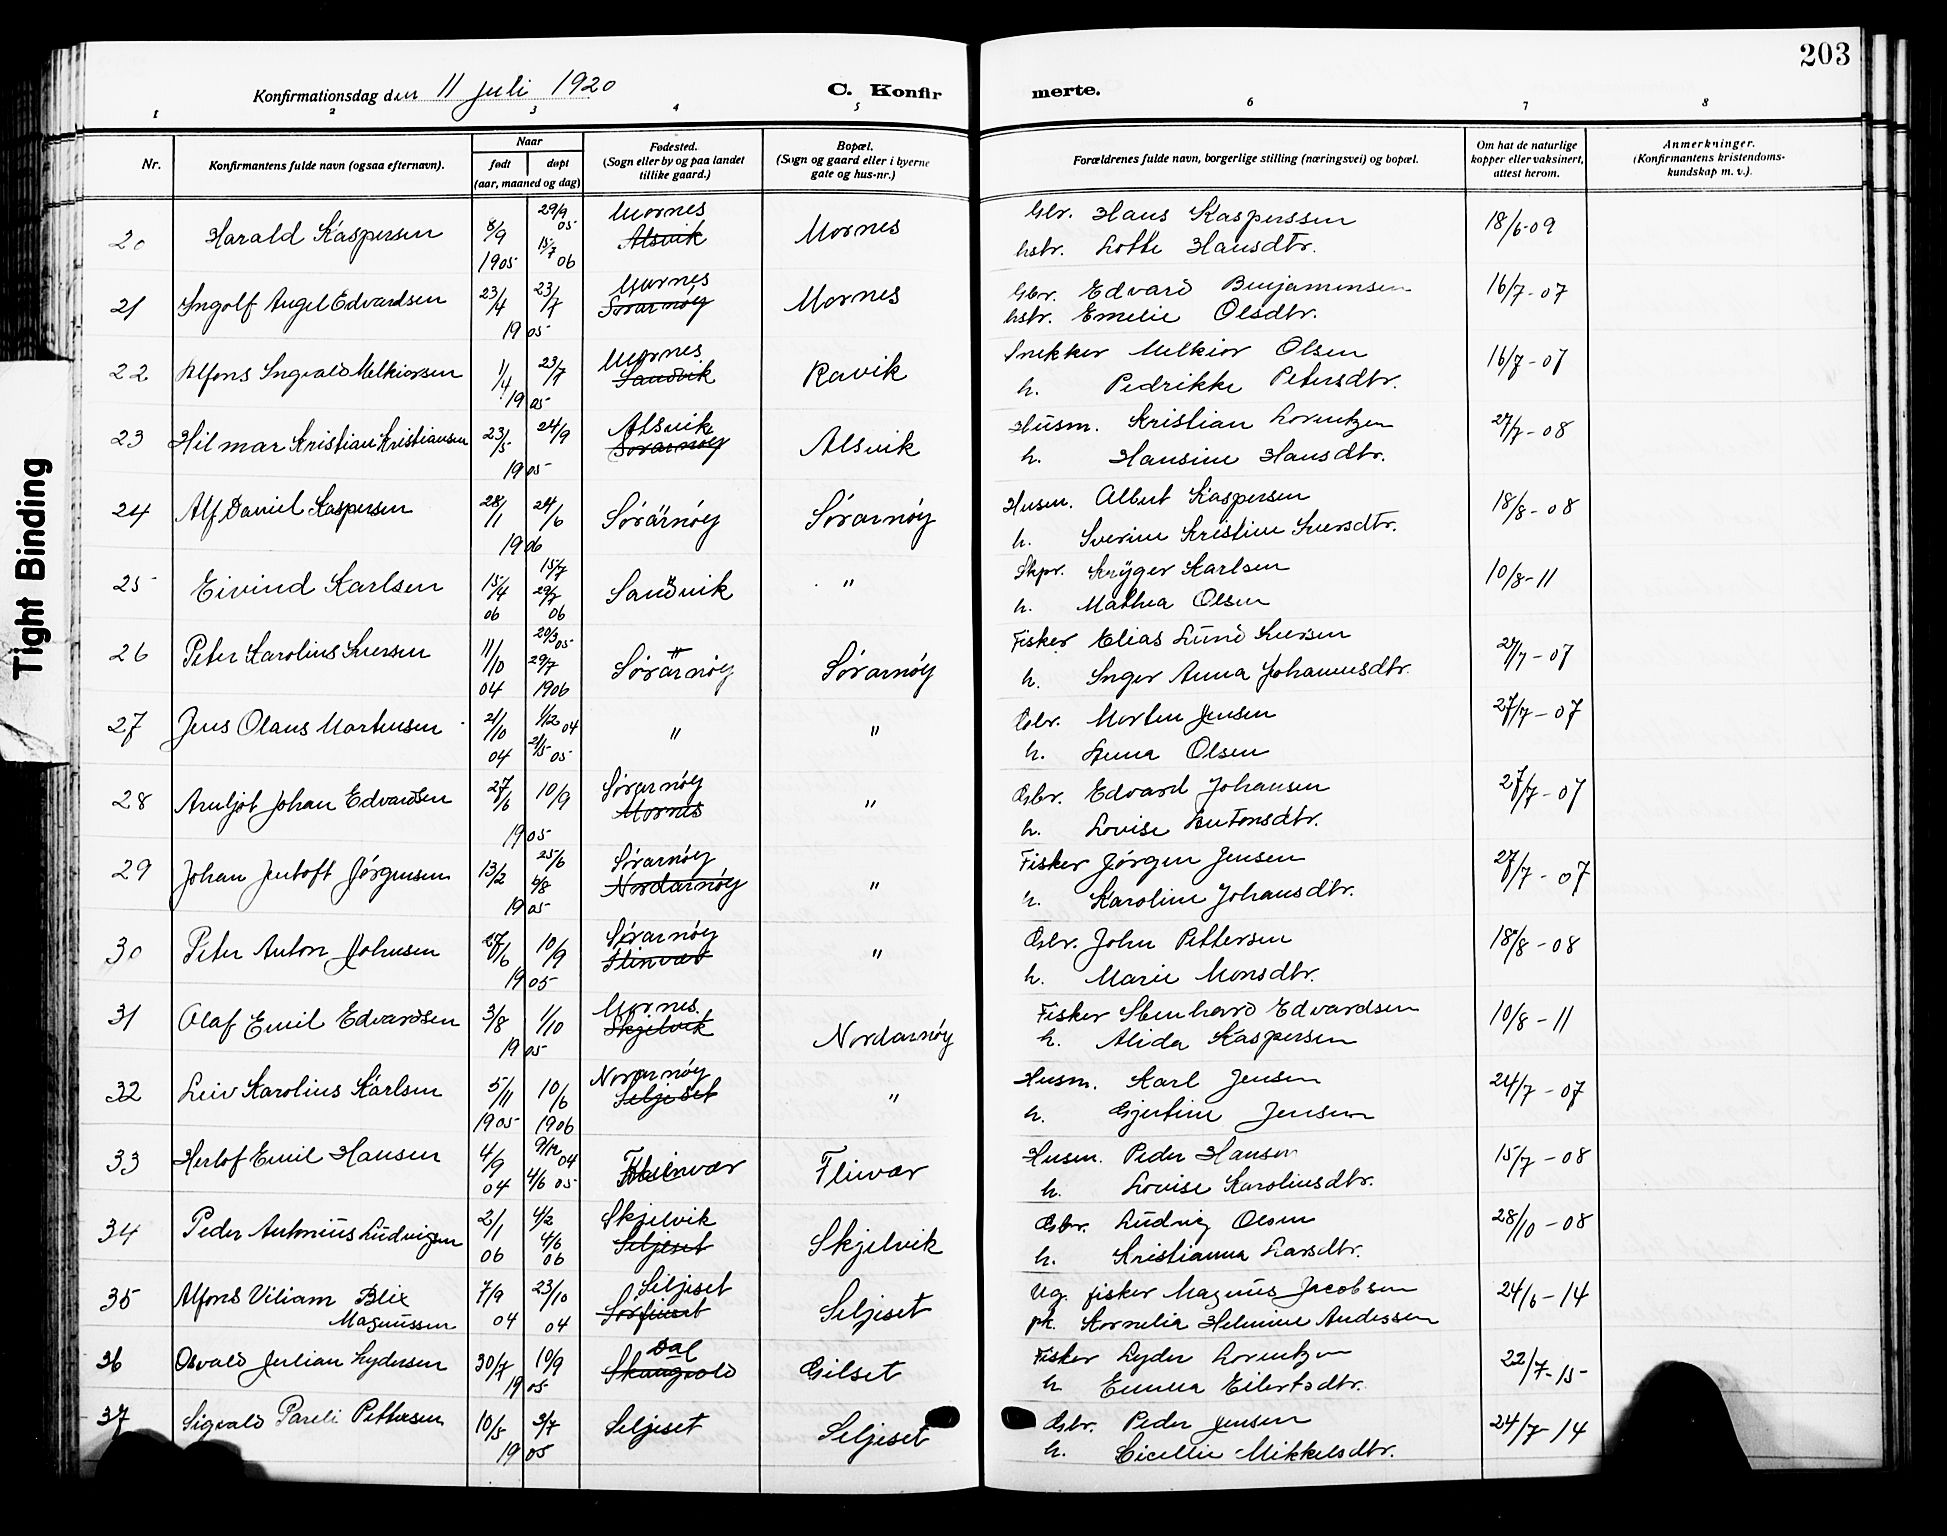 203
Konfirmationsdag den 11 Juli 1920
C. Konfirmerte.
1 2 3 4 5 6 7 8
Nr. | Konfirmantens fulde navn (ogsaa efternavn). | Naar født døpt (aar, maaned og dag) | Fødested. (Sogn eller by og paa landet tillike gaard.) | Bopæl. (Sogn og gaard eller i byerne gate og hus-nr.) | Forældrenes fulde navn, borgerlige stilling (næringsvei) og bopæl. | Om hat de naturlige kopper eller vaksinert, attest herom. | Anmerkninger. (Konfirmantens kristendoms-kundskap m. v.).
20 Harald Kaspersen 8/9 1905 29/9 05 15/7 06 Mornes Alsvik Mornes Gbr. Hans Kasperssen hstr. Lotte Hansdtr. 18/6-09
21 Ingolf Angel Edvardsen 23/4 23/7 1905 Mornes Sørarnøy Mornes Gbr. Edvard Benjaminsen hstr. Emelie Olsdtr. 16/7-07
22 Alfons Ingvald Melkiorsen 1/4 23/7 1905 Mornes Sandvik Ravik Snekker Melkior Olsen h. Pedrikke Petersdtr. 16/7-07
23 Hilmar Kristian Kristiansen 23/5 24/9 1905 Alsvik Sørarnøy Alsvik Husm. Kristian Lorentzen h. Hansine Hansdtr. 27/7-08
24 Alf Daniel Kaspersen 28/1 24/6 1906 Sørarnøy Sørarnøy Husm. Albert Kaspersen h. Sverine Kristine Iversdtr. 18/8-08
25 Eivind Karlsen 15/4 06 15/7 29/7 06 Sandvik " Skpr. Krÿger Karlsen h. Mathea Olsen 10/8-11
26 Peter Karolius Iversen 11/10 04 20/3 05 29/7 1906 Sørarnøy Sørarnøy Fisker Elias Lund Iversen h. Inger Anna Johannesdtr. 27/7-07
27 Jens Olaus Mortensen 21/10 04 1/12 04 21/5 05 " " Gbr. Morten Jensen h. Anna Olsen 27/7-07
28 Arnljot Johan Edvardsen 27/6 10/9 1905 Sørarnøy Mornes " Gbr. Edvard Johansen h. Lovise Antonsdtr. 27/7-07
29 Johan Jentoft Jörgensen 13/2 25/6 6/8 1905 Sørarnøy Nordarnøy " Fisker Jörgen Jensen h. Karoline Johansdtr. 27/7-07
30 Peter Anton Johnsen 27/6 10/9 1905 Sørarnøy Flinvær " Gbr. John Pettersen h. Marie Monsdtr. 18/8-08
31 Olaf Emil Edvardsen 3/8 1/10 1905 Mornes. Skjelvik Nordarnøy Fisker Stenhard Edvardsen h. Alida Kaspersen 10/8-11
32 Leiv Karolius Karlsen 5/11 1905 10/6 1906 Norarnøy Seljeset " Husm. Karl Jensen h. Gjertine Jensen 24/7-07
33 Herlof Emil Hansen 4/9 04 9/12 04 4/6 05 Flinvær Flivær Husm. Peder Hansen h. Lovise Karoliusdtr. 15/7-08
34 Peder Antonius Ludvigsen 2/1 06 4/2 4/6 06 Skjelvik Seljeset Skjelvik Gbr. Ludvig Olsen h. Kristianna Larsdtr. 28/10-08
35 Alfons Viliam Blix Magnussen 7/9 04 23/10 04 Seljeset Seljeset Ug. fisker Magnus Jacobsen pk. Kornelia Helmine Andessen 24/6-14
36 Osvald Julian Lydersen 30/7 10/9 1905 Dal Skaugvold Gilset Fisker Lyder Lorentzen h Emma Eilertsdtr. 22/7-15
37 Sigvald Pareli Pettersen 10/5 3/7 1905 Seljeset Seljeset Gbr. Peder Jensen h. Cicellie Mikkelsdtr. 24/7-14
Tight Binding